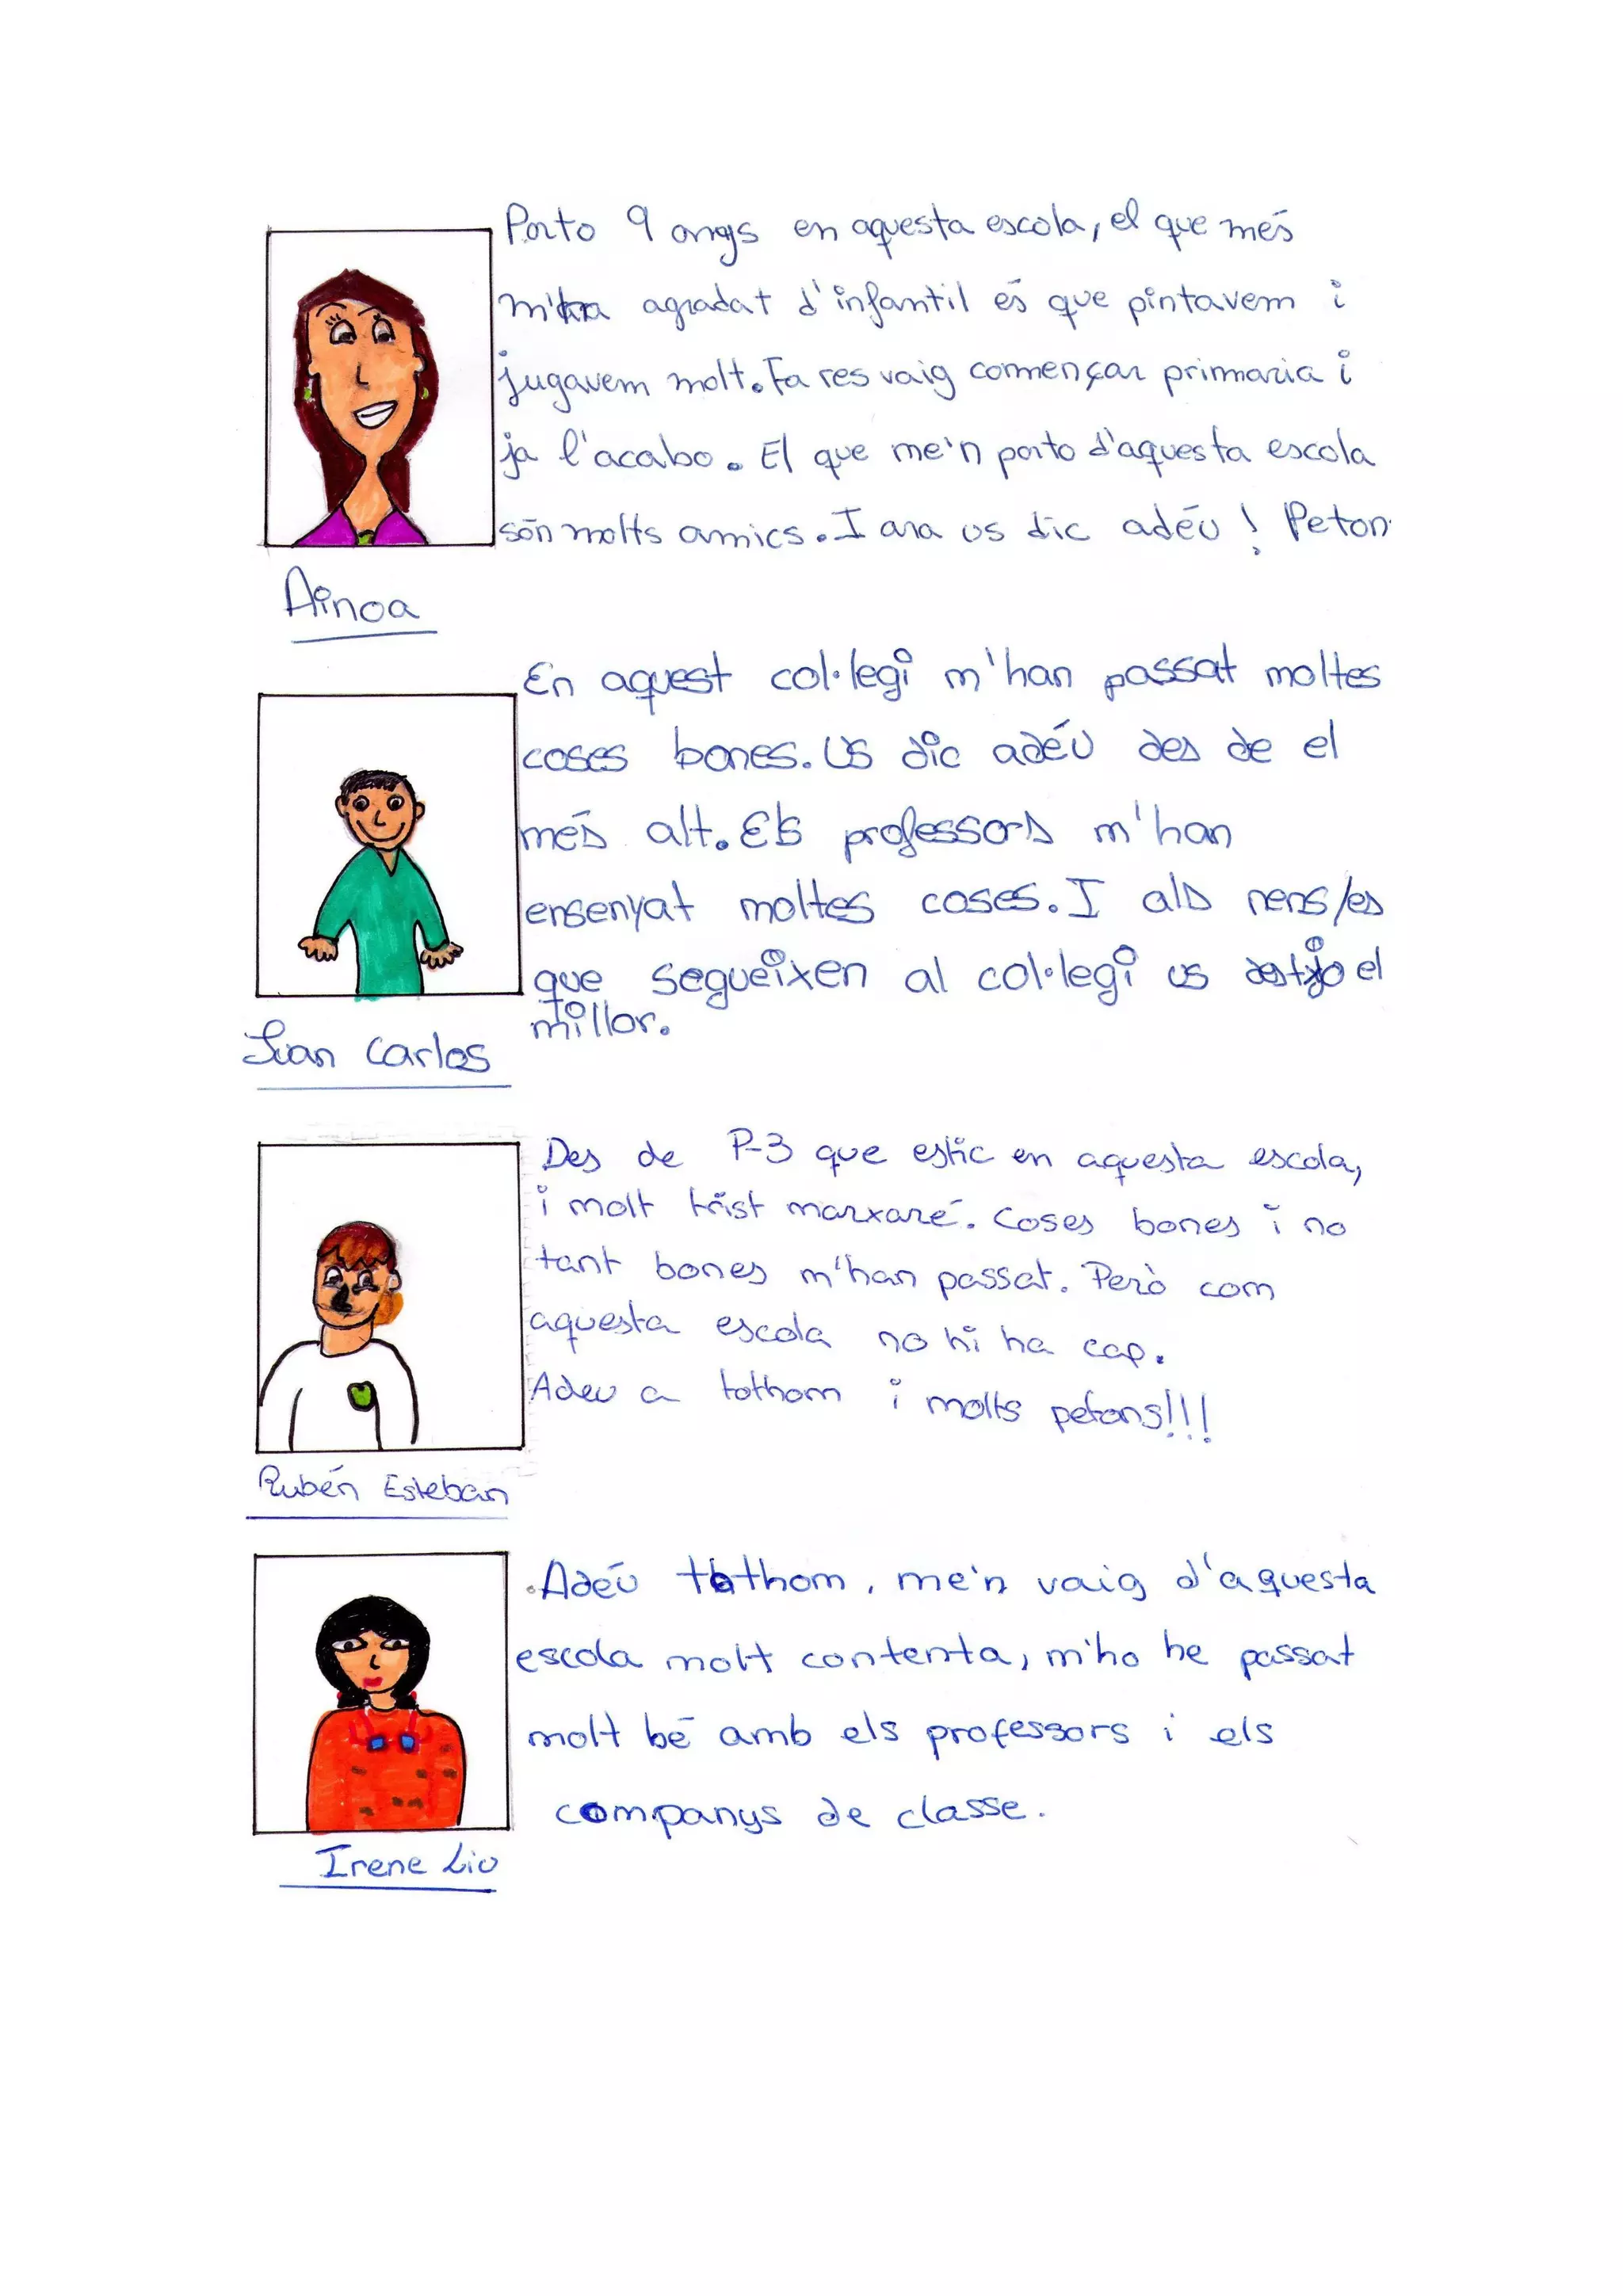 Porto 9 anys en aquesta escola, el que més
m'ha agradat d'infantil és que pintavem i
jugavem molt. Fa res vaig començar primaria i
ja l'acabo. El que me'n porto d'aquesta escola
són molts amics. I ara us dic adéu! Peton
Ainoa
En aquest col·legi m'han passat moltes
coses bones. Us dic adéu des de el
més alt. Els professors m'han
ensenyat moltes coses. I als nens/es
que segueixen al col·legi us el
millor.
Juan Carlos
Des de P-3 que estic en aquesta escola,
i molt trist marxaré. Coses bones i no
tant bones m'han passat. Però com
aquesta escola no hi ha cap.
Adeu a tothom i molts petons!!!
Rubén Esteban
Adéu tothom, me'n vaig d'aquesta
escola molt contenta, m'ho he passat
molt bé amb els professors i els
companys de classe.
Irene Liu